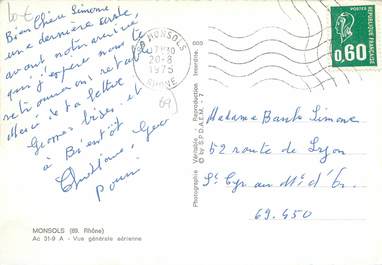 10 €
Bien Chère Simone
une dernière carte
avant notre arrivée,
que j'espère nous te
retrouverons rétablie
Merci de ta lettre
Grosses bises et
à Bientôt
MONSOLS (69. Rhône)
Ac 31-9 A - Vue générale aérienne
Photographie Véritable - Reproduction Interdite.
© by S.P.D.A.E.M.
000
MONSOLS
17H10
20-8
1975
RHONE
69
POSTES
RÉPUBLIQUE FRANÇAISE
0,60
Madame Simone
52 route de Lyon
St Cyr au Mt d'Or
69.450